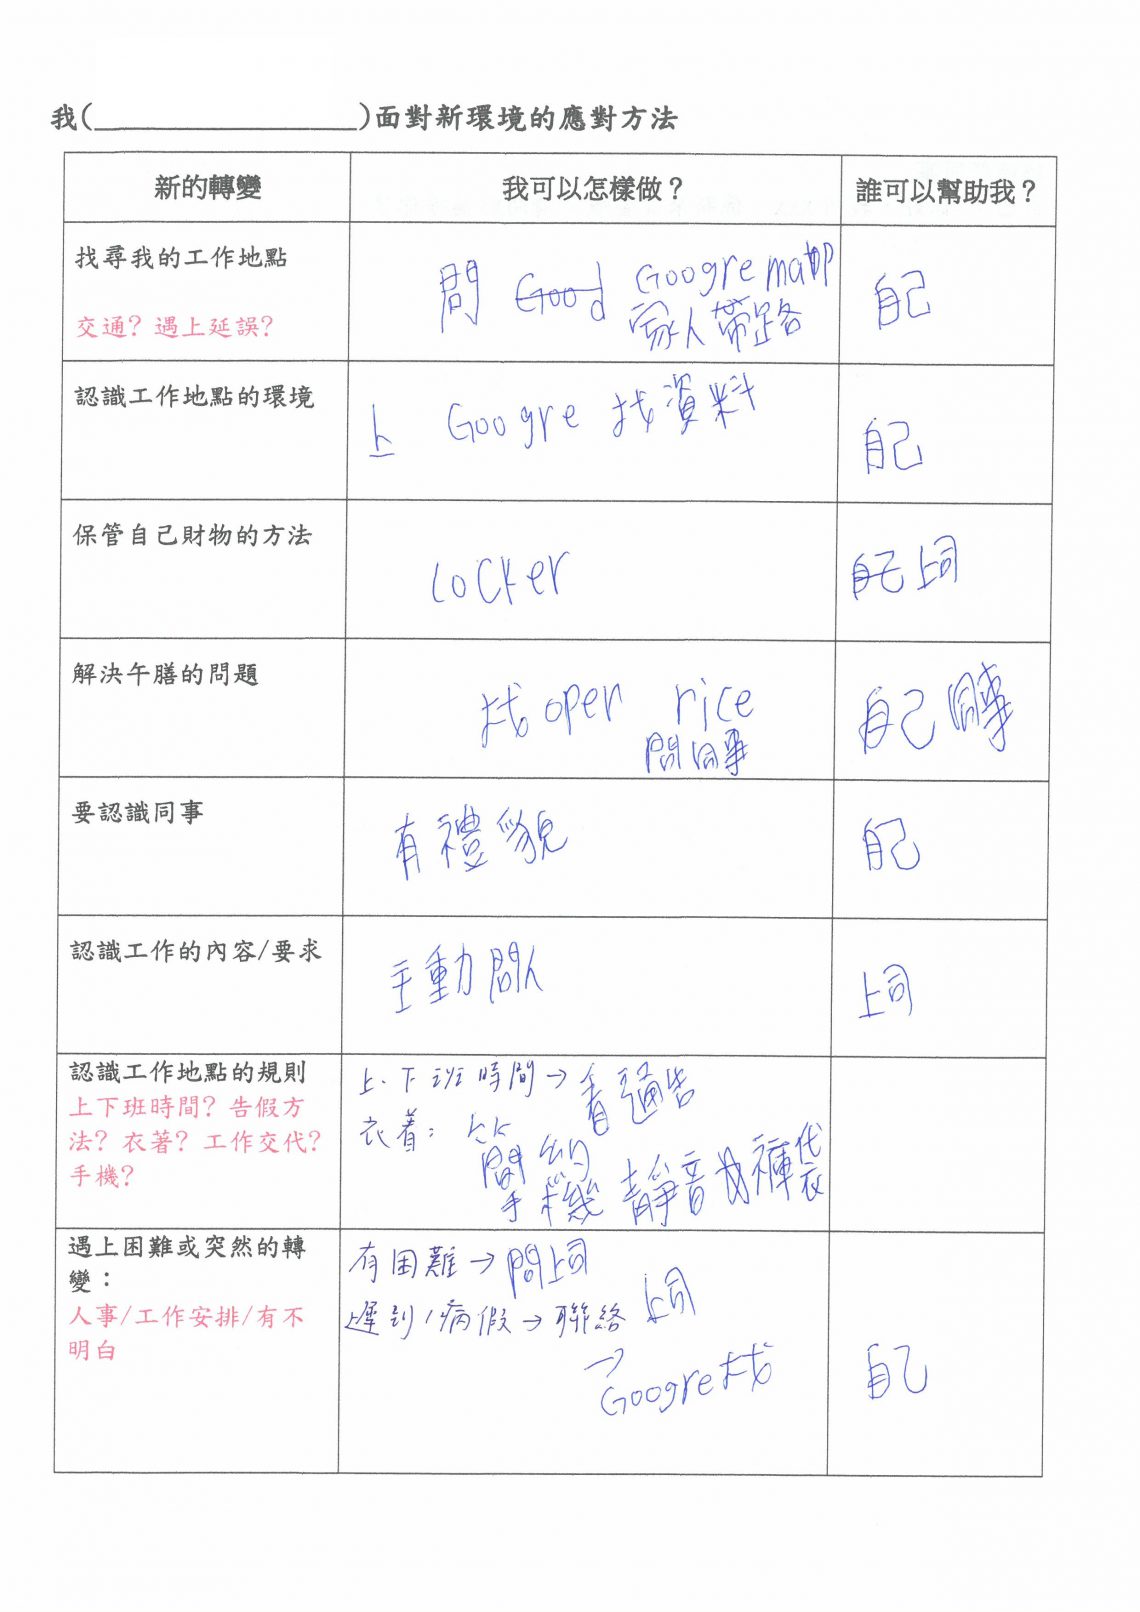 我(__________________)面對新環境的應對方法
新的轉變
我可以怎樣做？
誰可以幫助我？
找尋我的工作地點
交通？遇上延誤？
問 Good Googre map
家人帶路
自己
認識工作地點的環境
上 Googre 找資料
自己
保管自己財物的方法
locker
自己 上司
解決午膳的問題
找 oper rice
問同事
自己 同事
要認識同事
有禮貌
自己
認識工作的內容/要求
主動問人
上司
認識工作地點的規則
上下班時間？告假方
法？衣著？工作交代？
手機？
上、下班時間→看通告
衣着：簡約
手機 靜音 放褲袋
遇上困難或突然的轉
變：
人事/工作安排/有不
明白
有困難→問上司
遲到/病假→聯絡 上司
→
Googre 找
自己